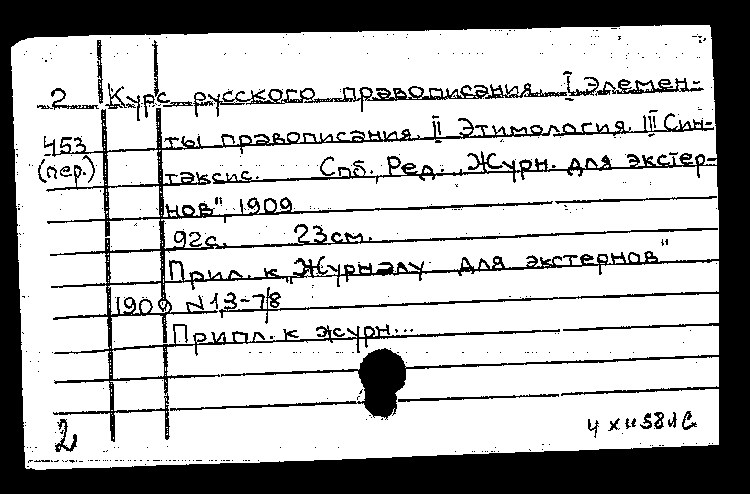 2 Курс русского правописания. I Элемен-
453 ты правописания. II Этимология. III Син-
(пер.) таксис. Спб., Ред. "Журн. для экстер-
нов", 1909
92с. 23см.
Прил. к "Журналу для экстернов"
1909 N1,3-7/8
Припл. к журн...
2